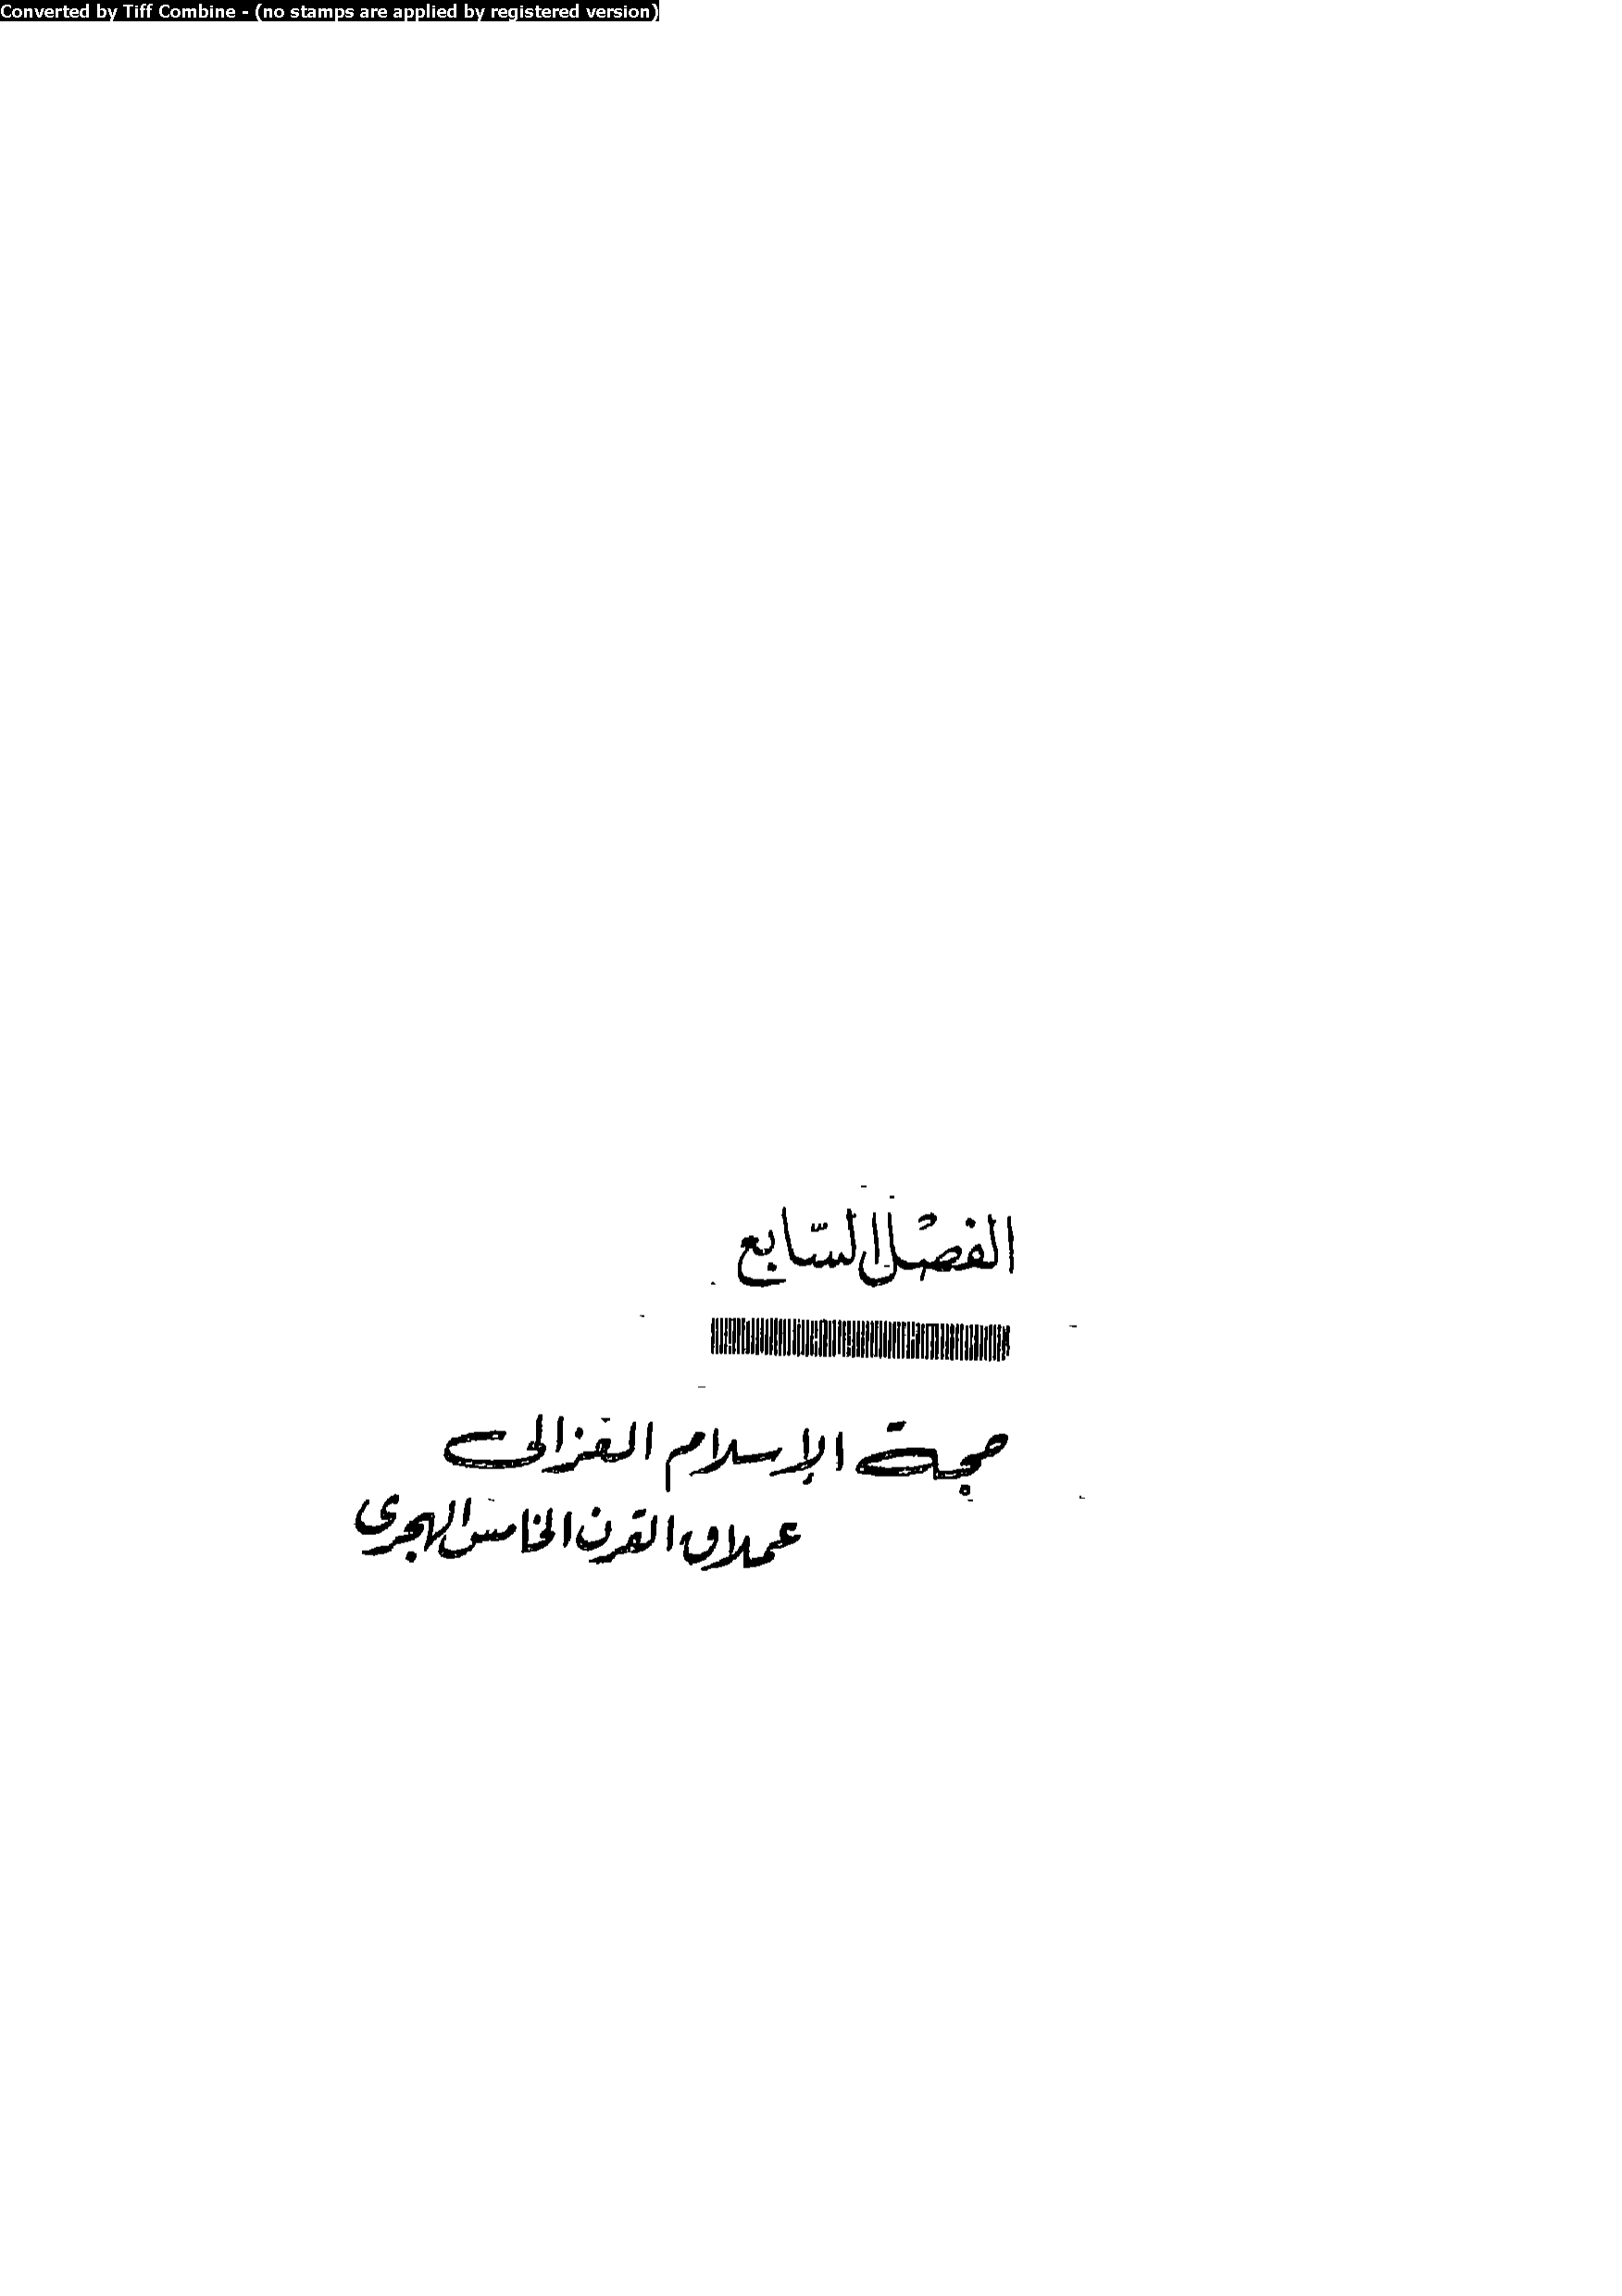 Converted by Tiff Combine - (no stamps are applied by registered version)
الفصل السّابع
حجة الإسلام الغزالى
عملاق القرن الخامس الهجرى